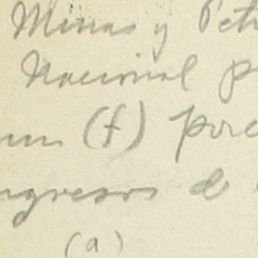 Minas y Petr
Nacional p
um (f) por
ngresos de
(a)